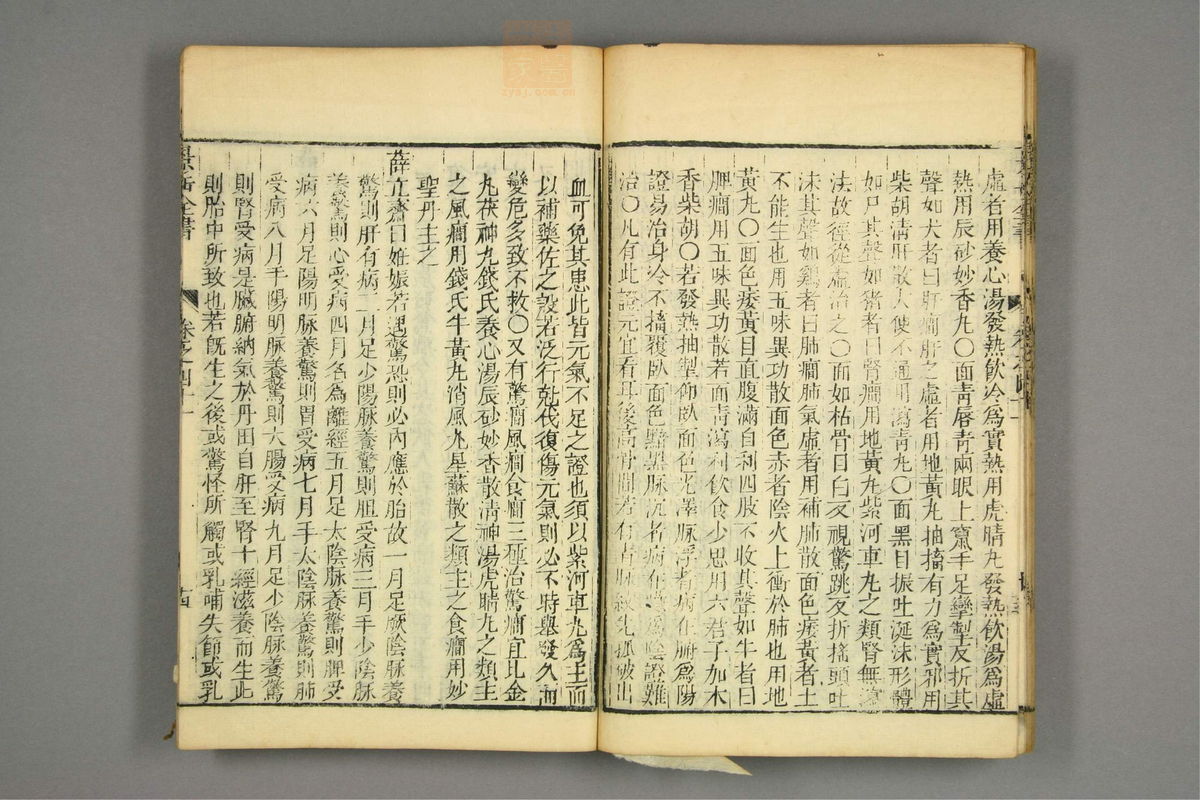 虛者用養心湯發熱飲冷爲實熱用虎睛丸發熱飲湯爲虛
熱用辰砂妙香丸〇面靑唇靑兩眼上竄手足攣掣反折其
聲如犬者曰肝癎肝之虛者用地黃丸抽搐有力爲實邪用
柴胡淸肝散大便不通用瀉靑丸〇面黑目振吐涎沫形體
如尸其聲如豬者曰腎癎用地黃丸紫河車丸之類腎無瀉
法故徑從虛治之〇面如枯骨目白反視驚跳反折搖頭吐
沫其聲如鷄者曰肺癎肺氣虛者用補肺散面色痿黃者土
不能生也用五味異功散面色赤者陰火上衝於肺也用地
黃丸〇面色痿黃目直腹滿自利四肢不收其聲如牛者曰
脾癎用五味異功散若面靑瀉利飲食少思用六君子加木
香柴胡〇若發熱抽掣仰臥面色光澤脉浮者病在腑爲陽
證易治身冷不搐覆臥面色黯黑脉沉者病在爲陰證難
治〇凡有此證元宜看耳後高骨間若有靑脉紋先抓破出
血可免其患此皆元氣不足之證也須以紫河車丸爲主而
以補藥佐之設若泛行尅伐復傷元氣則必不時舉發久而
變危多致不救〇又有驚癎風癎食癎三種治驚癎宜比金
丸茯神丸錢氏養心湯辰砂妙香散淸神湯虎睛丸之類主
之風癎用錢氏牛黃丸消風丸星蘇散之類主之食癎用妙
聖丹主之
薛立齋曰姙娠若遇驚恐則必內應於胎故一月足厥陰脉養
驚則肝有病二月足少陽脉養驚則胆受病三月手少陰脉
養驚則心受病四月名爲離經五月足太陰脉養驚則脾受
病六月足陽明脉養驚則胃受病七月手太陰脉養驚則肺
受病八月手陽明脉養驚則大腸受病九月足少陰脉養驚
則腎受病是臟腑納氣於丹田自肝至腎十經滋養而生此
則胎中所致也若旣生之後或驚怪所觸或乳哺失節或乳
景岳全書
卷之四十一
十四